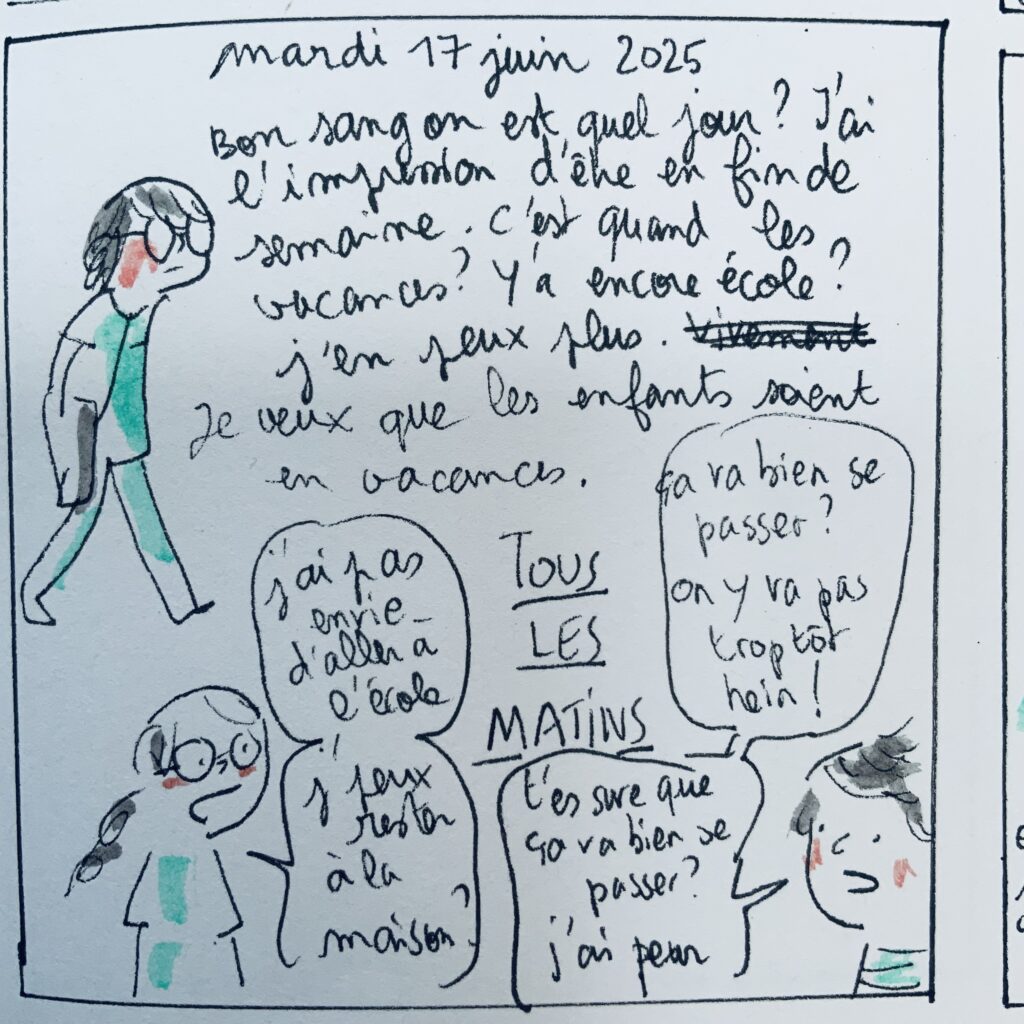 mardi 17 juin 2025
Bon sang on est quel jour? J'ai
l'impression d'être en fin de
semaine. C'est quand les
vacances? Y'a encore école?
j'en peux plus. Vivement
Je veux que les enfants soient
en vacances.
TOUS
LES
MATINS
j'ai pas
envie
d'aller à
l'école
j'peux
rester
à la
maison?
ça va bien se
passer?
on y va pas
trop tôt
hein!
t'es sure que
ça va bien se
passer?
j'ai peur